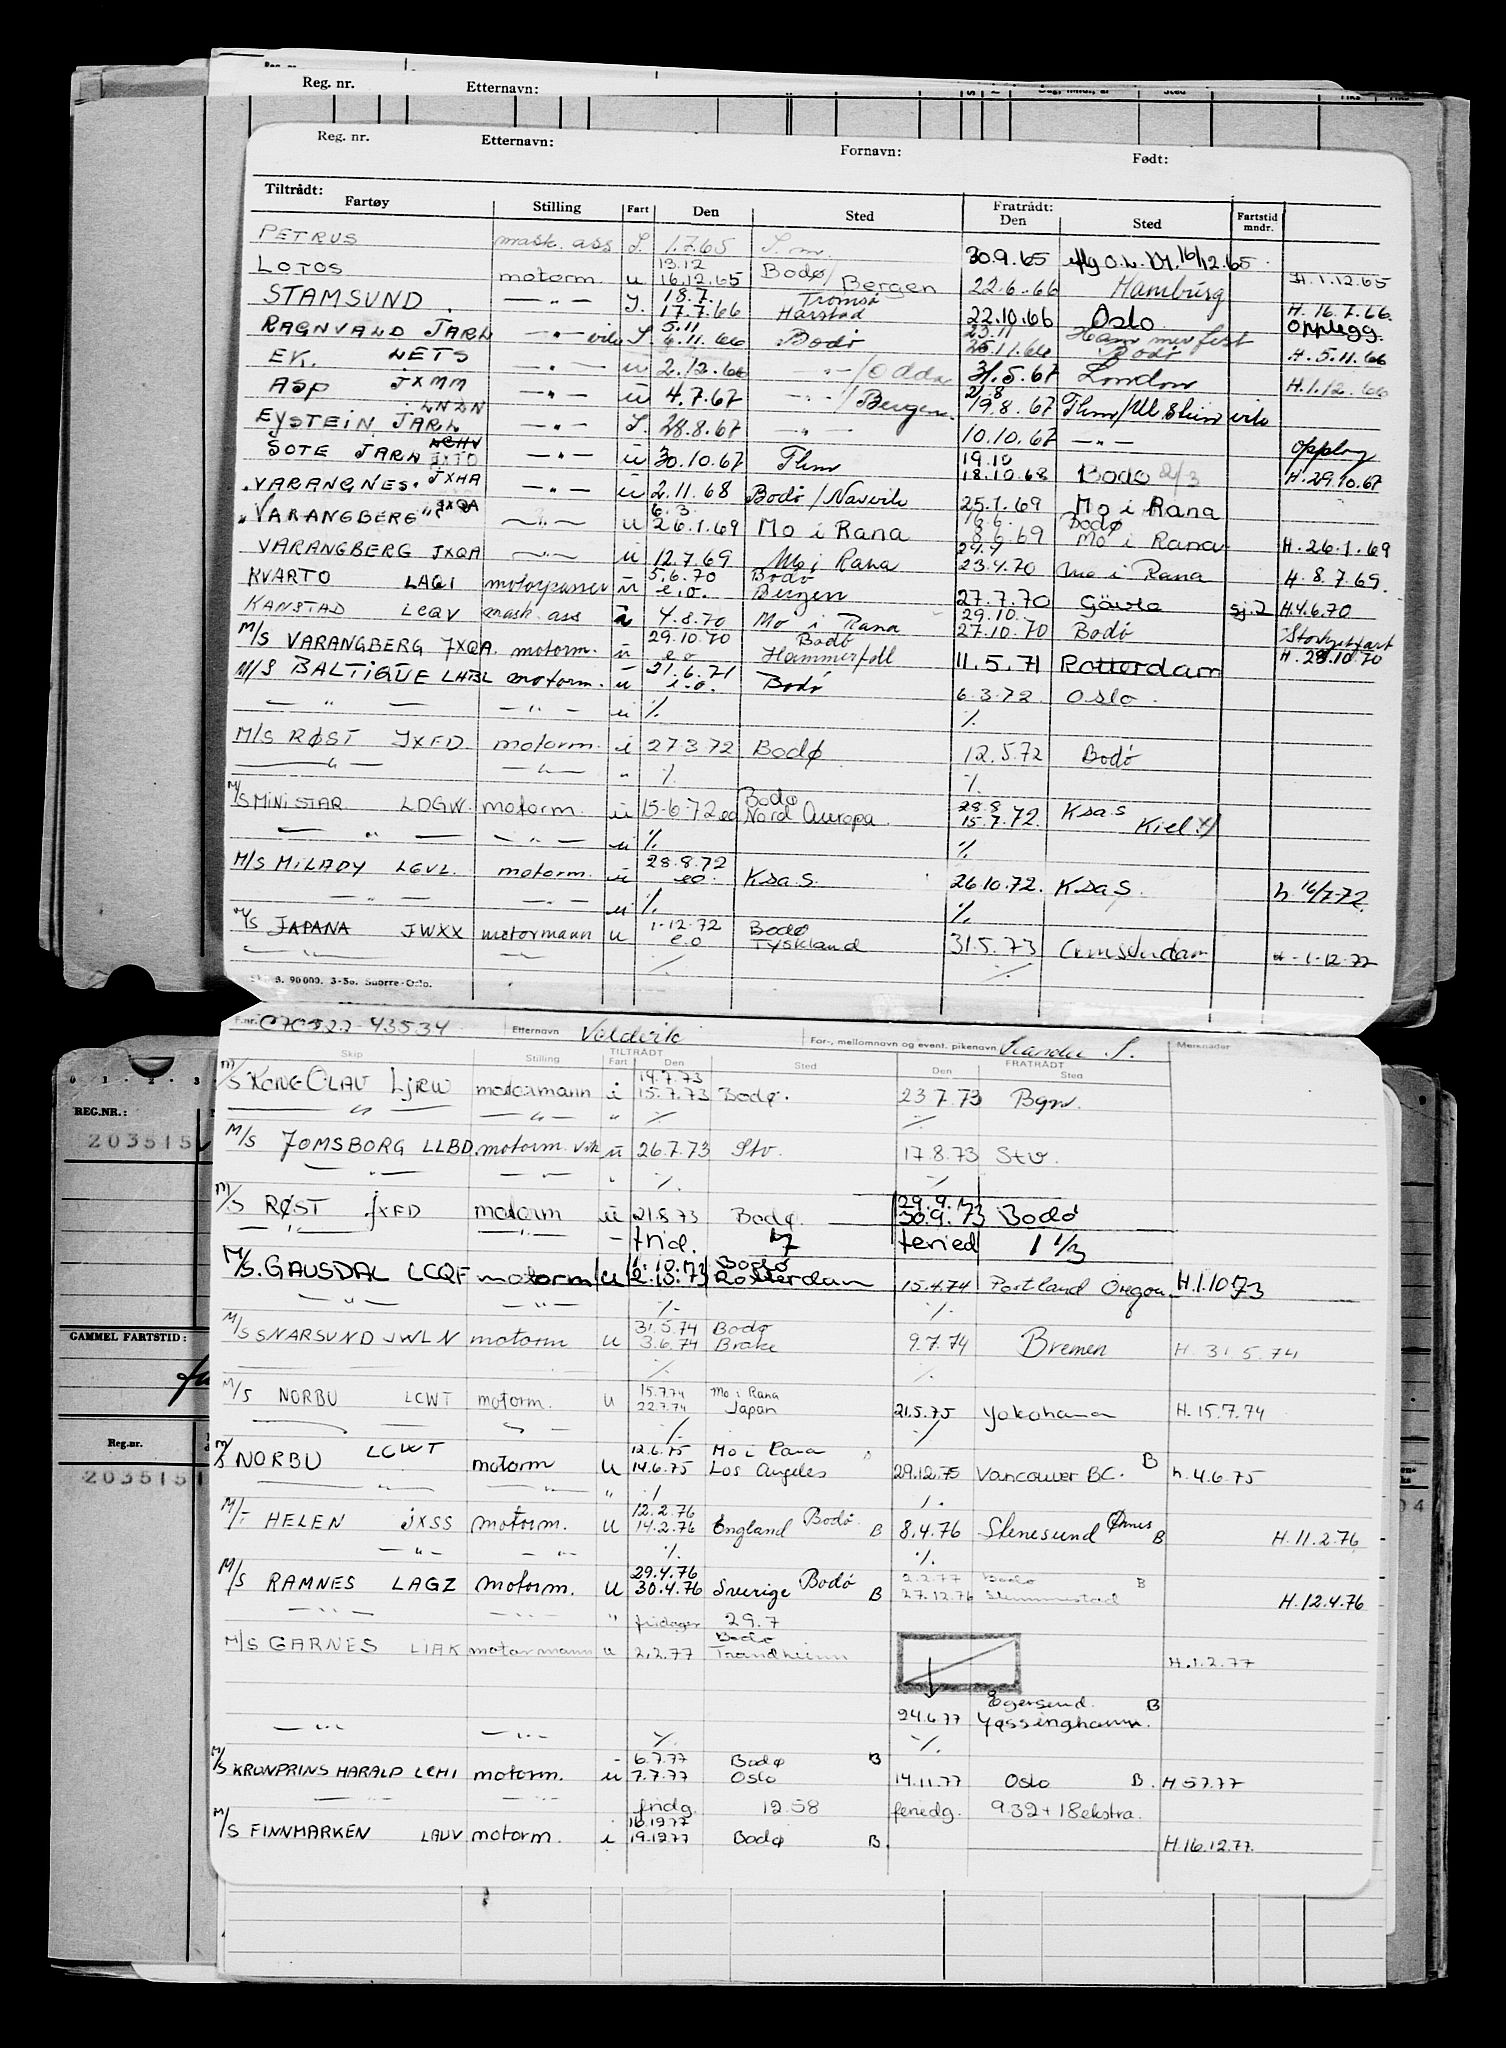 Reg. nr. Etternavn:
Reg. nr. Etternavn: Fornavn: Født:
Tiltrådt: Fratrådt:
Fartøy Stilling Fart Den Sted Den Sted Fartstid mndr.
PETRUS mask. ass S. 1.7.65 30.9.65
13.12
LOTOS motorm. u 16.12.65 Bodø/Bergen 22.6.66 Hamburg H.1.12.65
18.7. Tromsø
STAMSUND. —"— 17.7.66 Harstad 22.10.66 Oslo H. 16.7.66. Opplegg.
5.11 23.11 Hammerfest
RAGNVALD JARL —"— vik S. 6.11.66 Bodø 25.11.66 Bodø H. 5.11.66
EK. LETS —"— u 2.12.66 —"—/Odda 31.5.67 London H.1.12.66
ASP JXMM —"— u 4.7.67 —"—/Bergen. 19.8.67 vik
EYSTEIN JARL LNDN —"— S. 28.8.67 —"— 10.10.67 —"—
19.10
SOTE JARL JXJO —"— u 30.10.67 Thm 18.10.68 Bodø 2/3 H. 29.10.67
"VARANGNES" JXHA —"— u 2.11.68 Bodø/Narvik 25.1.69 Mo i Rana
6.3. 16.6. Bodø
"VARANGBERG" JXQA —"— u 26.1.69 Mo i Rana 8.6.69 Mo i Rana H. 26.1.69
VARANGBERG JXQA —"— u 12.7.69 Mo i Rana 23.4.70 Mo i Rana H. 8.7.69.
5.6.70 Bodø
KVARTO LAGI motorpasser u e.o. Bergen 27.7.70 Gävle sj.2 H.4.6.70
29.10.
KANSTAD LCQV mask ass i 4.8.70 Mo i Rana 27.10.70 Bodø
29.10.70 Bodø
M/S VARANGBERG JXQA. motorm. u e.o Hammerfall 11.5.71 Rotterdam H. 28.10.70
21.6.71
M/S BALTIQUE LHBL motorm. u e.o. Bodø 6.3.72 Oslo
— " — — " — u ٪ ٪
M/S RØST JXFD. motorm. i 27.3.72 Bodø 12.5.72 Bodø
— " — — " — " ٪ ٪
Bodø 28.8
M/S MINISTAR LDGW. motorm. u 15.6.72 eo Nord Europa. 15.7.72. Ksa S Kiel x/
— " — — " — u ٪ ٪
28.8.72
M/S MILADY LGVL. motorm. u eo. Ksa S. 26.10.72. Ksa S. h. 16/7-72.
— " — — " — u ٪ ٪
1.12.72 Bodø
M/S JAPANA JWXX motormann u e.o Tyskland 31.5.73 Amsterdam H - 1-12-72
— " — — " — ٪ ٪
90000. 3-56. Snorre-Oslo.
F.nr. 070522-43534 Etternavn Valdvik For-, mellomnavn og event. pikenavn Leander S. Merknader
Skip Stilling TILTRÅDT Fart Den Sted Den FRATRÅDT Sted
14.7.73
M/S KONG OLAV LJRW motormann i 15.7.73 Bodø. 23.7.73 Bgn.
— " — — " — " ٪ ٪
M/S JOMSBORG LLBD motorm. vik u 26.7.73 Stv. 17.8.73 Stv.
— " — — " — " ٪ ٪
29.9.73
M/S RØST JXFD motorm u 21.8.73 Bodø. 30.9.73 Bodø
— " — — " — - frid. 7 feried 1 1/3
1.10.73 Bodø
M/S. GAUSDAL LCQF motorm u 2.10.73 Rotterdam 15.4.74 Portland Oregon. H.1.10 73
— " — — " — ٪ ٪
31.5.74 Bodø
M/S SNARSUND JWLN motorm u 3.6.74 Brake 9.7.74 Bremen H. 31.5.74
٪ ٪
15.7.74 Mo i Rana
M/S NORBU LCWT motorm. u 22.7.74 Japan 21.5.75 Yokohama H.15.7.74
٪ ٪
12.6.75 Mo i Rana
M/S NORBU LCWT motorm u 14.6.75 Los Angeles 29.12.75 Vancouver BC. B h.4.6.75
— " — — " — " ٪ ٪
12.2.76
M/T HELEN JXSS motorm. u 14.2.76 England Bodø. B 8.4.76 Stenesund Ørnes B H.11.2.76
— " — — " — ٪ ٪
29.4.76 2.2.77 Bodø B
M/S RAMNES LAGZ motorm. u 30.4.76 Sverige Bodø B 27.12.76 Slemmestad H.12.4.76
— " — — " — " fridager 29.7
Bodø
M/S GARNES LIAK motormann u 2.2.77 Trondheim H.1.2.77
Egersund. B
24.6.77
— " — — " — ٪ ٪
6.7.77 Bodø B
M/S KRONPRINS HARALD LCHI motorm. u 7.7.77 Oslo 14.11.77 Oslo B. H 5.7.77
— " — — " — fridg. 12.58 feriedg. 9.32 + 18 ekstra.
16.12.77
M/S FINNMARKEN LAUV motorm. i 19.12.77 Bodø B. H.16.12.77.
0 1. 2. 3
REG.NR.:
203515
GAMMEL FARTSTID:
Reg.nr.
203515